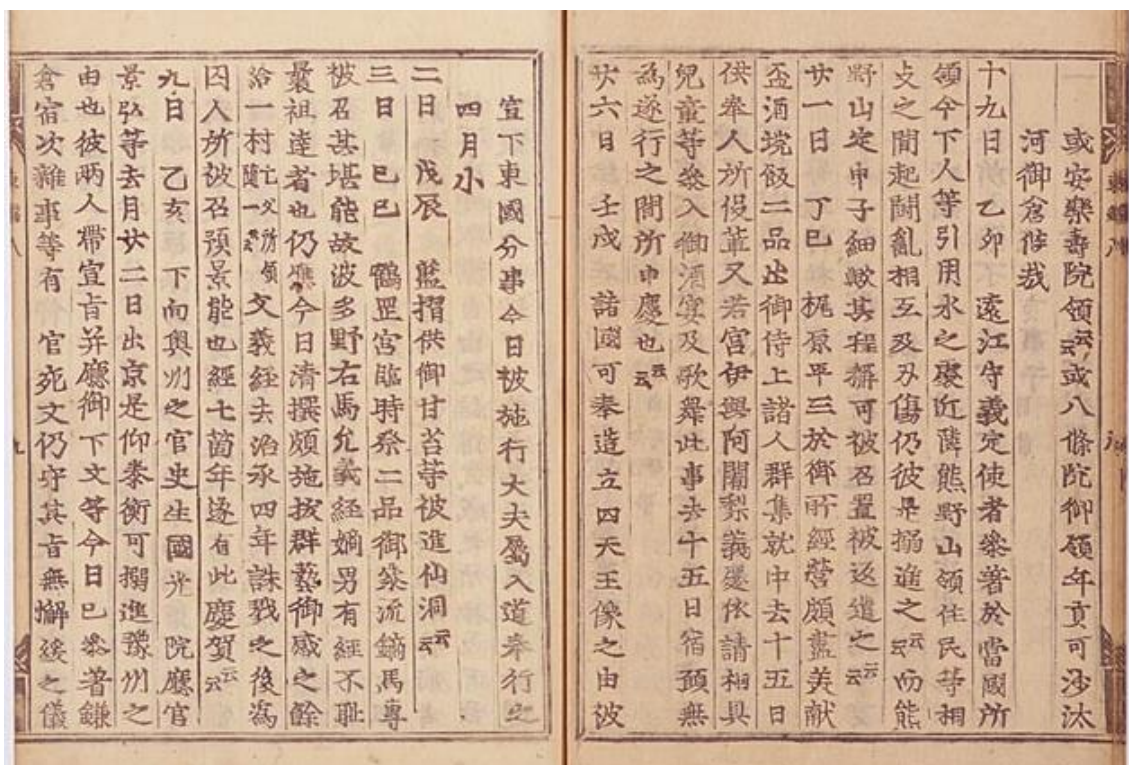 一 或安樂壽院領云々或八條院御領年貢可沙汰
河御倉偖哉
十九日 乙卯 遠江守義定使者參著於當國所
領今下人等引用水之處近隣熊野山領住民等相
支之間起鬪亂相互及刃傷仍彼是搦進之云々而熊
野山定申子細歟其程稱可被召置被返遣之云々
廿一日 丁巳 梶原平三於御所經營頗盡美献
盃酒埦飯二品出御侍上諸人群集就中去十五日
供奉人所役輩又若宮伊與阿闍梨義慶依請相具
兒童等參入御酒宴及歌舞此事去十五日宿預無
為遂行之間所申慶也云々
廿六日 壬戌 諸國可奉造立四天王像之由被
宣下東國分事今日被施行大夫屬入道奉行之
四月小
二日 戊辰 藍摺供御甘苔等被進仙洞云々
三日 己巳 鶴岡宮臨時祭二品御參流鏑馬專
被召甚堪能故波多野右馬允義経嫡男有經不耻
曩祖達者也仍應今日清撰頗施拔群藝御感之餘
給一村文義経去治承四年誅戮之後為
囚人所被召預景能也經七箇年遂有此慶賀云々
九日 乙亥 下向奥州之官史生國光院廳官
景弘等去月廿二日出京是仰泰衡可搦進豫州之
由也彼兩人帶宣旨并廳御下文等今日已參著鎌
倉宿次雜事等有 官宛文仍守其旨無懈緩之儀
九